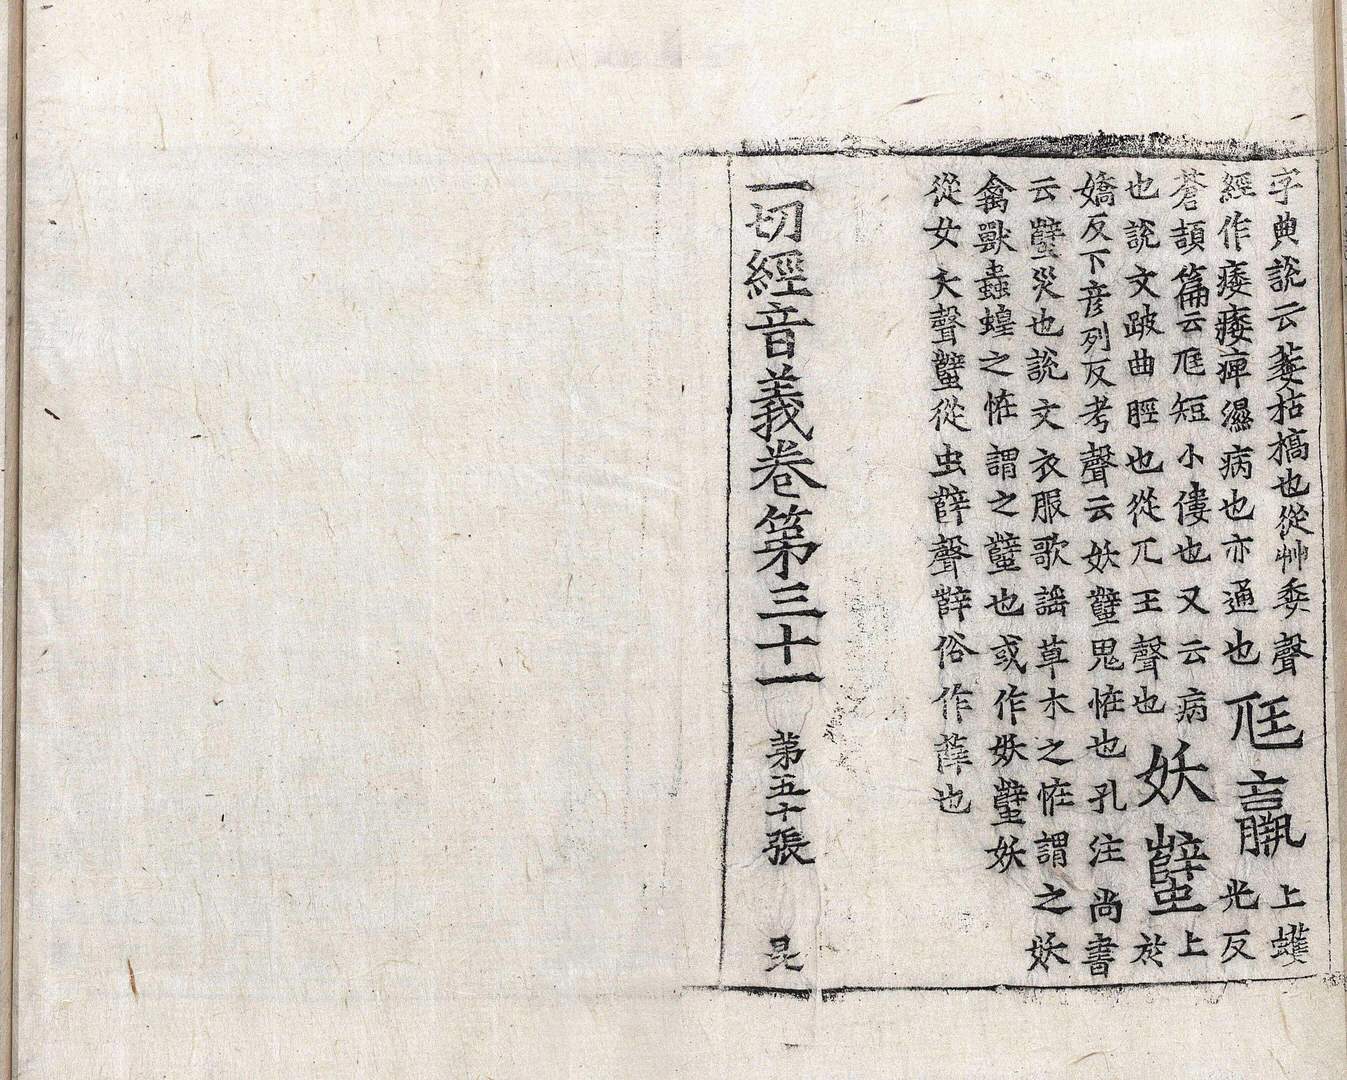 字典說云萎枯槁也從艸委聲
經作痿痿痺濕病也亦通也
尪羸
上蠖
光反
蒼頡篇云尪短小僂也又云病
也說文跛曲脛也從兀王聲也
妖蠥
上
於
嬌反下彦列反考聲云妖蠥鬼恠也孔注尚書
云蠥災也說文衣服歌謠草木之恠謂之妖
禽獸蟲蝗之恠謂之蠥也或作妖蠥妖
從女夭聲蠥從虫辥聲辥俗作薛也
一切經音義卷第三十一
第五十張
昆